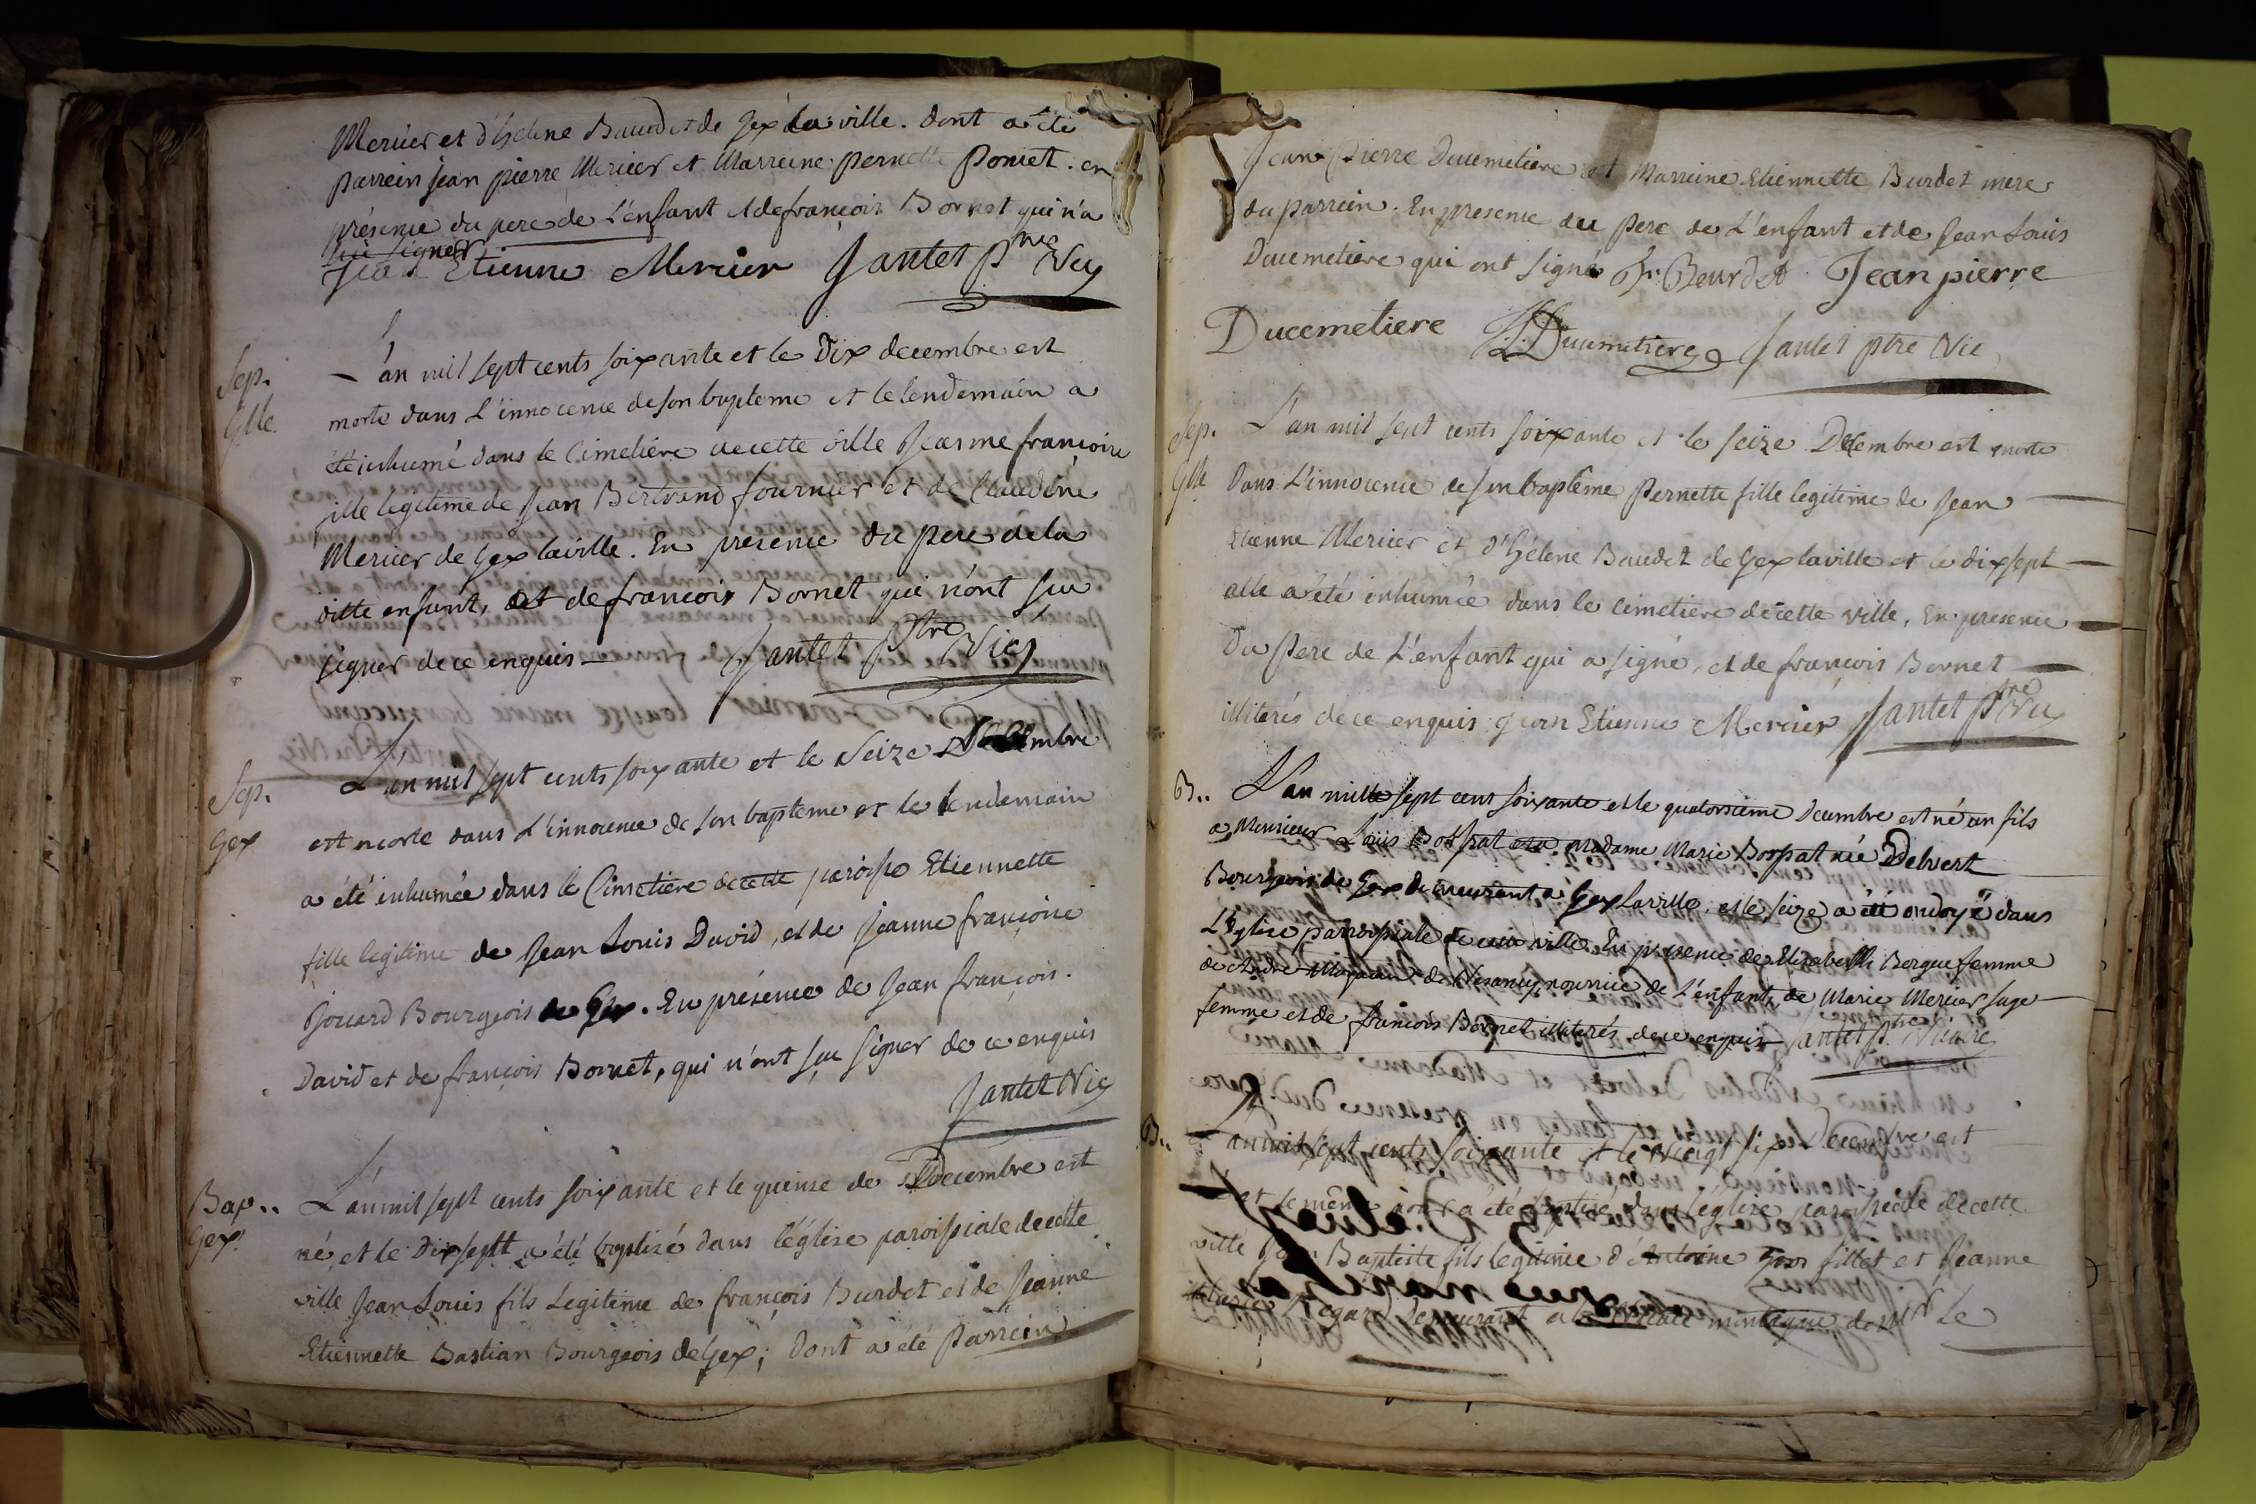 Mercier et d'hélène Baudet de Gex la ville. dont a été
parrein jean pierre Mercier et Marreine pernette Poncet. en
présence du pere de L'enfant et de francois Bornet qui n'a
sçu signer
Jean Etienne Mercier Jantet ptre Vic
Sep.
Glle.
L'an mil sept cents soixante et le Dix decembre est
morte dans L'innocence de son bapteme et le lendemain a
été inhumé dans le Cimetiére de cette ville Jeanne françoise
fille legitime de Jean Bertrand fournier et de Claudine
Mercier de Gex laville. En présence du pere de la
ditte enfant, et de francois Bornet qui n'ont sçu
signer de ce enquis Jantet ptre Vic
Sep.
Gex
L'an mil sept cents soixante et le Seize Decembre
est morte dans L'innocence de son bapteme et le lendemain
a été inhumée dans le Cimetiére de cette paroisse Etiennette
fille legitime de Jean Louis David, et de Jeanne françoise
Gouard Bourgeois de Gex. En présence de Jean françois
David et de françois Bornet, qui n'ont sçu signer de ce enquis
Jantet Vic
Bap..
Gex.
L'an mil sept cents soixante et le quinse de Decembre est
né, et le Dix sept a été baptisé dans l'église paroissiale de cette
ville Jean Louis fils Legitime de françois Burdet et de Jeanne
Etiennette Bastian Bourgeois de Gex; Dont a été Parrein
Jean Pierre Ducemetiere et Marreine Etiennette Burdet mere
du parrein. En presence du Pere de L'enfant et de Jean Louis
Ducemetiere qui ont signé fr. Beurdet Jean pierre
Ducemetiere J L Ducimetiere Jantet ptre Vic
Sep.
Glle
L'an mil sept cents soixante et le seize Decembre est morte
Dans L'innocence de son baptême Pernette fille legitime de Jean
Etienne Mercier et d'Hélene Baudet de Gex laville et le dix sept
elle a été inhumée dans le cimetiere de cette ville, En presence
Du Pere de L'enfant qui a signé, et de françois Bornet
illiterés de ce enquis. jean Etienne Mercier Jantet ptre Vic
B..
L'an mille sept cent soixante et le quatorsieme Decembre est né un fils
a Monsieur Loüis Bosspat et a Madame Marie Bosspat née Delvert
Bourgeois de Gex demeurant a Gex Laville, et le seize a été ondoyé dans
L'Eglise parroissiale de cette ville. En presence de Elizabeth Bergue femme
de André de Vesancy nourrice de L'enfant, de Marie Mercier sage
femme et de francois Bornet illiterés de ce enquis Jantet ptre Vicaire
B..
L'an mil sept cents soixante et le Vingt six Decembre est
né et le même jour a été baptisé dans l'église paroissiale de cette
ville Jean Baptiste fils legitime d'Antoine fillet et Jeanne
Regard Demeurant a la montagne de Mr Le